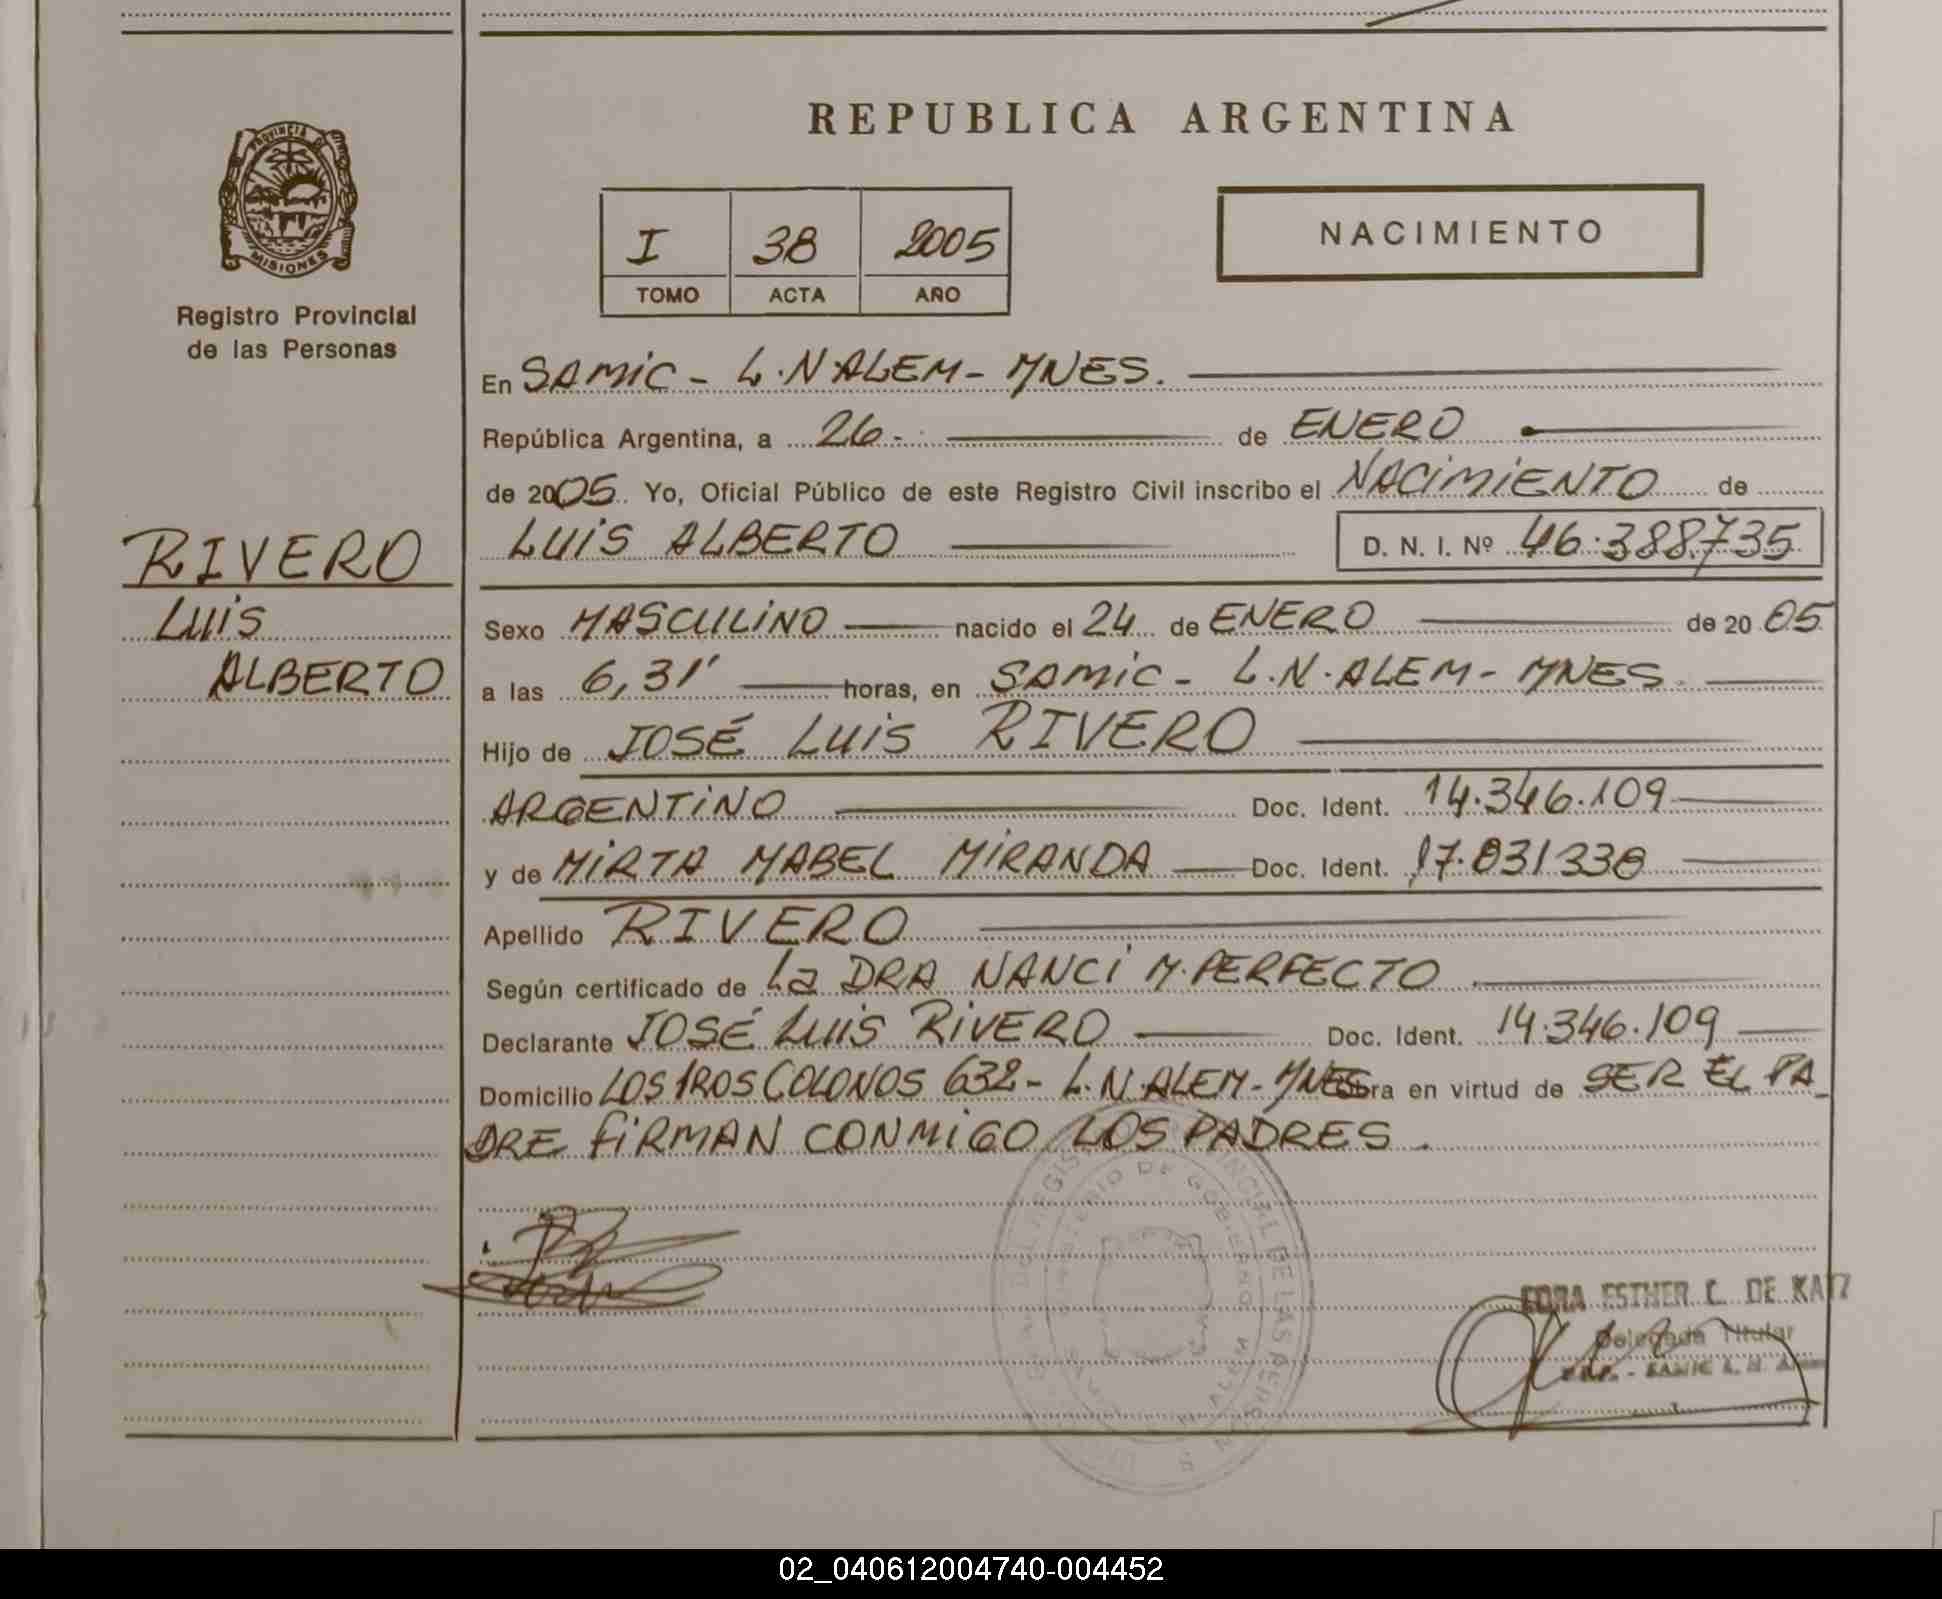 REPUBLICA ARGENTINA
PROVINCIA DE
MISIONES
Registro Provincial
de las Personas
I 38 2005
TOMO ACTA AÑO
NACIMIENTO
En SAMIC - L.N.ALEM - MNES.
República Argentina, a 26 - de ENERO
de 2005 Yo, Oficial Público de este Registro Civil inscribo el NACIMIENTO de
LUIS ALBERTO D. N. I. Nº 46.388.735
RIVERO
LUIS
ALBERTO
Sexo MASCULINO nacido el 24 de ENERO de 2005
a las 6,31' horas, en SAMIC - L.N.ALEM - MNES.
Hijo de JOSÉ LUIS RIVERO
ARGENTINO Doc. Ident. 14.346.109
y de MIRTA MABEL MIRANDA Doc. Ident. 17.831338
Apellido RIVERO
Según certificado de La DRA NANCI M. PERFECTO
Declarante JOSÉ LUIS RIVERO Doc. Ident. 14.346.109
Domicilio LOS 1ROS COLONOS 632 - L.N.ALEM - MNES Obra en virtud de SER EL PA_
DRE FIRMAN CONMIGO LOS PADRES.
ESTHER C. DE KATZ
Delegada Titular
SAMIC L. N.
02_040612004740-004452